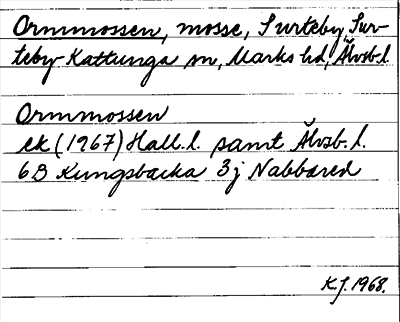 Ormmossen, mosse, Surteby, Sur-
teby-Kattunga sn, Marks hd, Älvsb. l.
Ormmossen
ek (1967) Hall. l. samt Älvsb. l.
6B Kungsbacka 3j Nabbared
K.J. 1968.